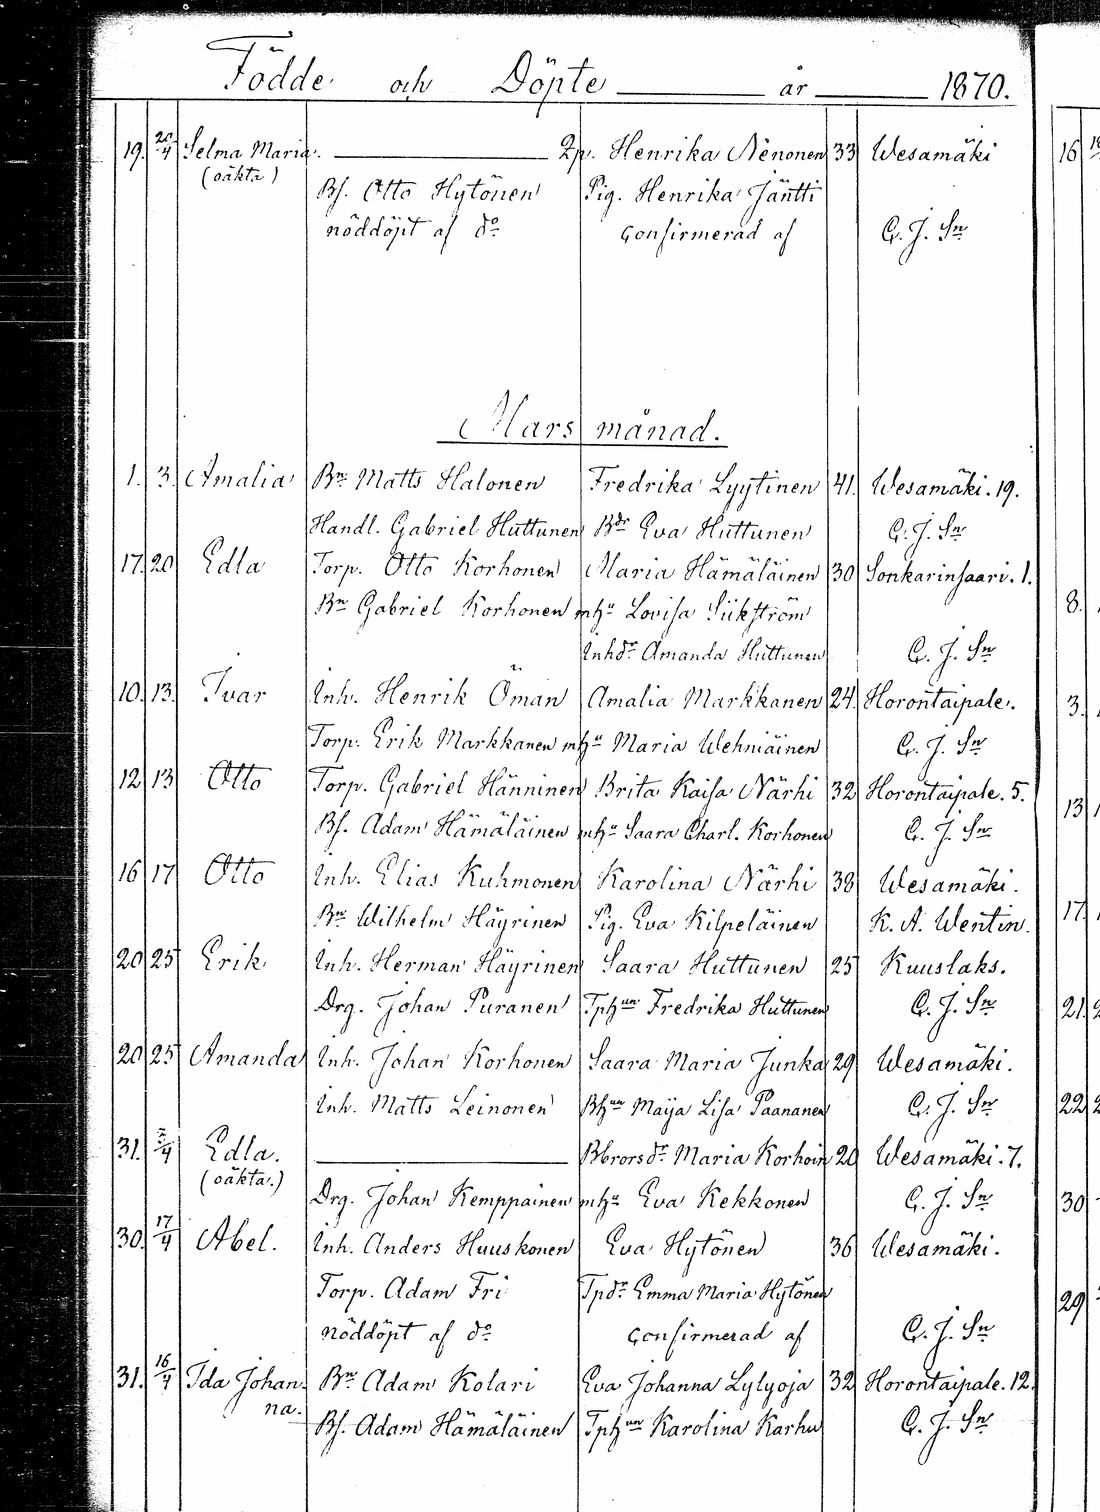 Födde och Döpte år 1870.
19. 20/4 Selma Maria. 2p. Henrika Nenonen 33 Wesamäki 16
(oäkta)
Bs. Otto Hytönen Pig. Henrika Jäntti
nöddöpt af do confirmerad af C. J. Sn
Mars månad.
1. 3. Amalia Bn Matts Halonen Fredrika Lyytinen 41. Wesamäki. 19.
Handl. Gabriel Huttunen Bdr Eva Huttunen C. J. Sn
17. 20 Edla Torp. Otto Korhonen Maria Hämäläinen 30 Sonkarinsaari. 1.
Bn Gabriel Korhonen mhu Lovisa Siikström 8.
Inhdr Amanda Huttunen C. J. Sn
10. 13. Ivar Inh. Henrik Öman Amalia Markkanen 24. Horontaipale. 3.
Torp. Erik Markkanen mhu Maria Wehniäinen C. J. Sn
12 13 Otto Torp. Gabriel Hänninen Brita Kaisa Närhi 32 Horontaipale. 5. 13
Bs. Adam Hämäläinen mhu Saara Charl. Korhonen C. J. Sn
16 17 Otto Inh. Elias Kuhmonen Karolina Närhi 38 Wesamäki.
Bn Wilhelm Häyrinen Pig. Eva Kilpeläinen K. A. Wentin. 17
20 25 Erik Inh. Herman Häyrinen Saara Huttunen 25 Kuuslaks.
Drg. Johan Puranen Tphun Fredrika Huttunen C. J. Sn 21.
20 25 Amanda Inh. Johan Korhonen Saara Maria Junka 29 Wesamäki.
Inh. Matts Leinonen Bhun Maija Lisa Paananen C. J. Sn 22
31. Edla. Bbrorsdr Maria Korhoin 20 Wesamäki. 7.
(oäkta.)
Drg. Johan Kemppainen mhu Eva Kekkonen C. J. Sn 30
30. 17/4 Abel. Inh. Anders Huuskonen Eva Hytönen 36 Wesamäki.
Torp. Adam Fri Tpdr Emma Maria Hytönen 29
nöddöpt af do confirmerad af C. J. Sn
31. 16/4 Ida Johan- Bn Adam Kolari Eva Johanna Lylyoja 32 Horontaipale. 12.
na.
Bs. Adam Hämäläinen Tphun Karolina Karhu C. J. Sn